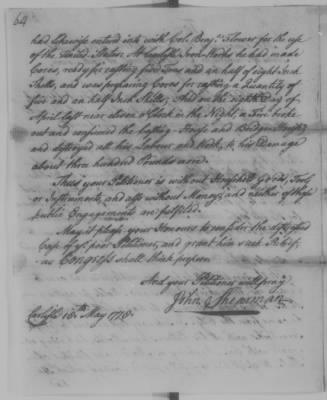 64
had likewise entered into with Col. Benj.ⁿ Flower for the use
of the United States. At Carlisle Iron-Works he had made
Cores, ready for casting five Tons and an half of eight Inch
Shells, and was preparing Cores for casting a Quantity of
five and an half Inch Shells; And on the eighth Day of
April last near eleven o'Clock in the Night, a Fire broke
out and consumed the Casting-House and Bridge
and destroyed all his Labour and Work, to his Damage
about three hundred Pounds more.
Thus your Petitioner is without Household Goods, Tools
or Instruments, and also without Money, and neither of these
public Engagements are fulfilled.
May it please your Honours to consider the distressed
Case of yr. poor Petitioner, and grant him such Relief,
as Congress shall think proper.
And your Petitioner will pray
John Shearman
Carlisle 18th May 1778.